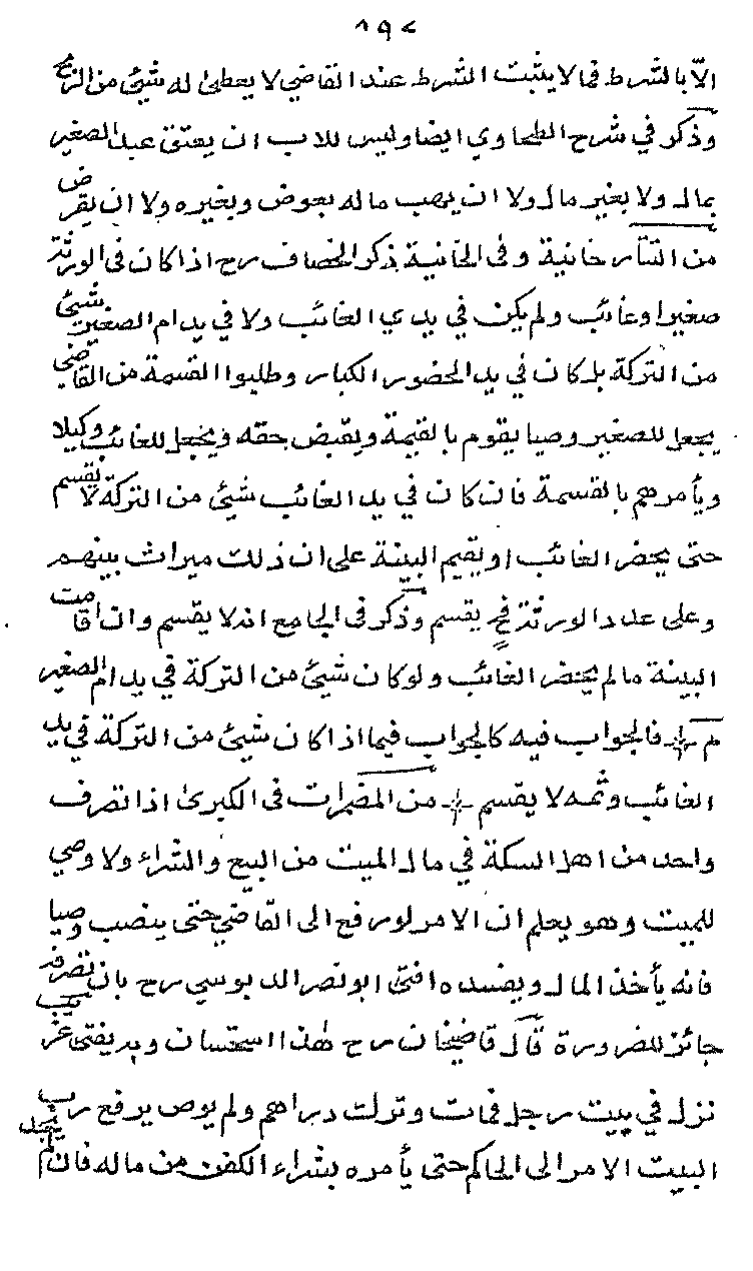 ٨٩٢
الا بالشرط فما لا يثبت الشرط عند القاضي لا يعطى له شيئ من الربح
وذكر في شرح الطحاوي ايضا وليس للاب ان يعتق عبد الصغير
بمال ولا بغير مال ولا ان يهب ماله بعوض وبغيره ولا ان يقرض
من التتارخانية وفي الخانية ذكر الخصاف رح اذا كان في الورثة
صغيرا وغائب ولم يكن في يدي الغائب ولا في يد ام الصغير شيئ
من التركة بل كان في يد الحضور الكبار وطلبوا القسمة من القاضي
يجعل للصغير وصيا يقوم بالقيمة ويقبض حقه ويجعل للغائب وكيلا
ويأمرهم بالقسمة فان كان في يد الغائب شيئ من التركة لا يقسم
حتى يحضر الغائب او يقيم البينة على ان ذلك ميراث بينهم
وعلى عدد الورثة فح يقسم وذكر في الجامع انه لا يقسم وان اقامت
البينة مالم يحضر الغائب ولو كان شيئ من التركة في يد ام الصغير
م فالجواب فيه كالجواب فيما اذا كان شيئ من التركة في يد
الغائب وثمه لا يقسم من المضمرات في الكبرى اذا تصرف
واحد من اهل السكة في مال الميت من البيع والشراء ولا وصي
للميت وهو يعلم ان الامر لو رفع الى القاضي حتى ينصب وصيا
فانه يأخذ المال ويفسده افتى ابو نصر الدبوسي رح بان تصرفه
جائز للضرورة قال قاضيخان رح هذا استحسان وبه يفتى غريب
نزل في بيت رجل فمات وترك دراهم ولم يوص يرفع رب
البيت الامر الى الحاكم حتى يأمره بشراء الكفن من ماله فان لم يجد